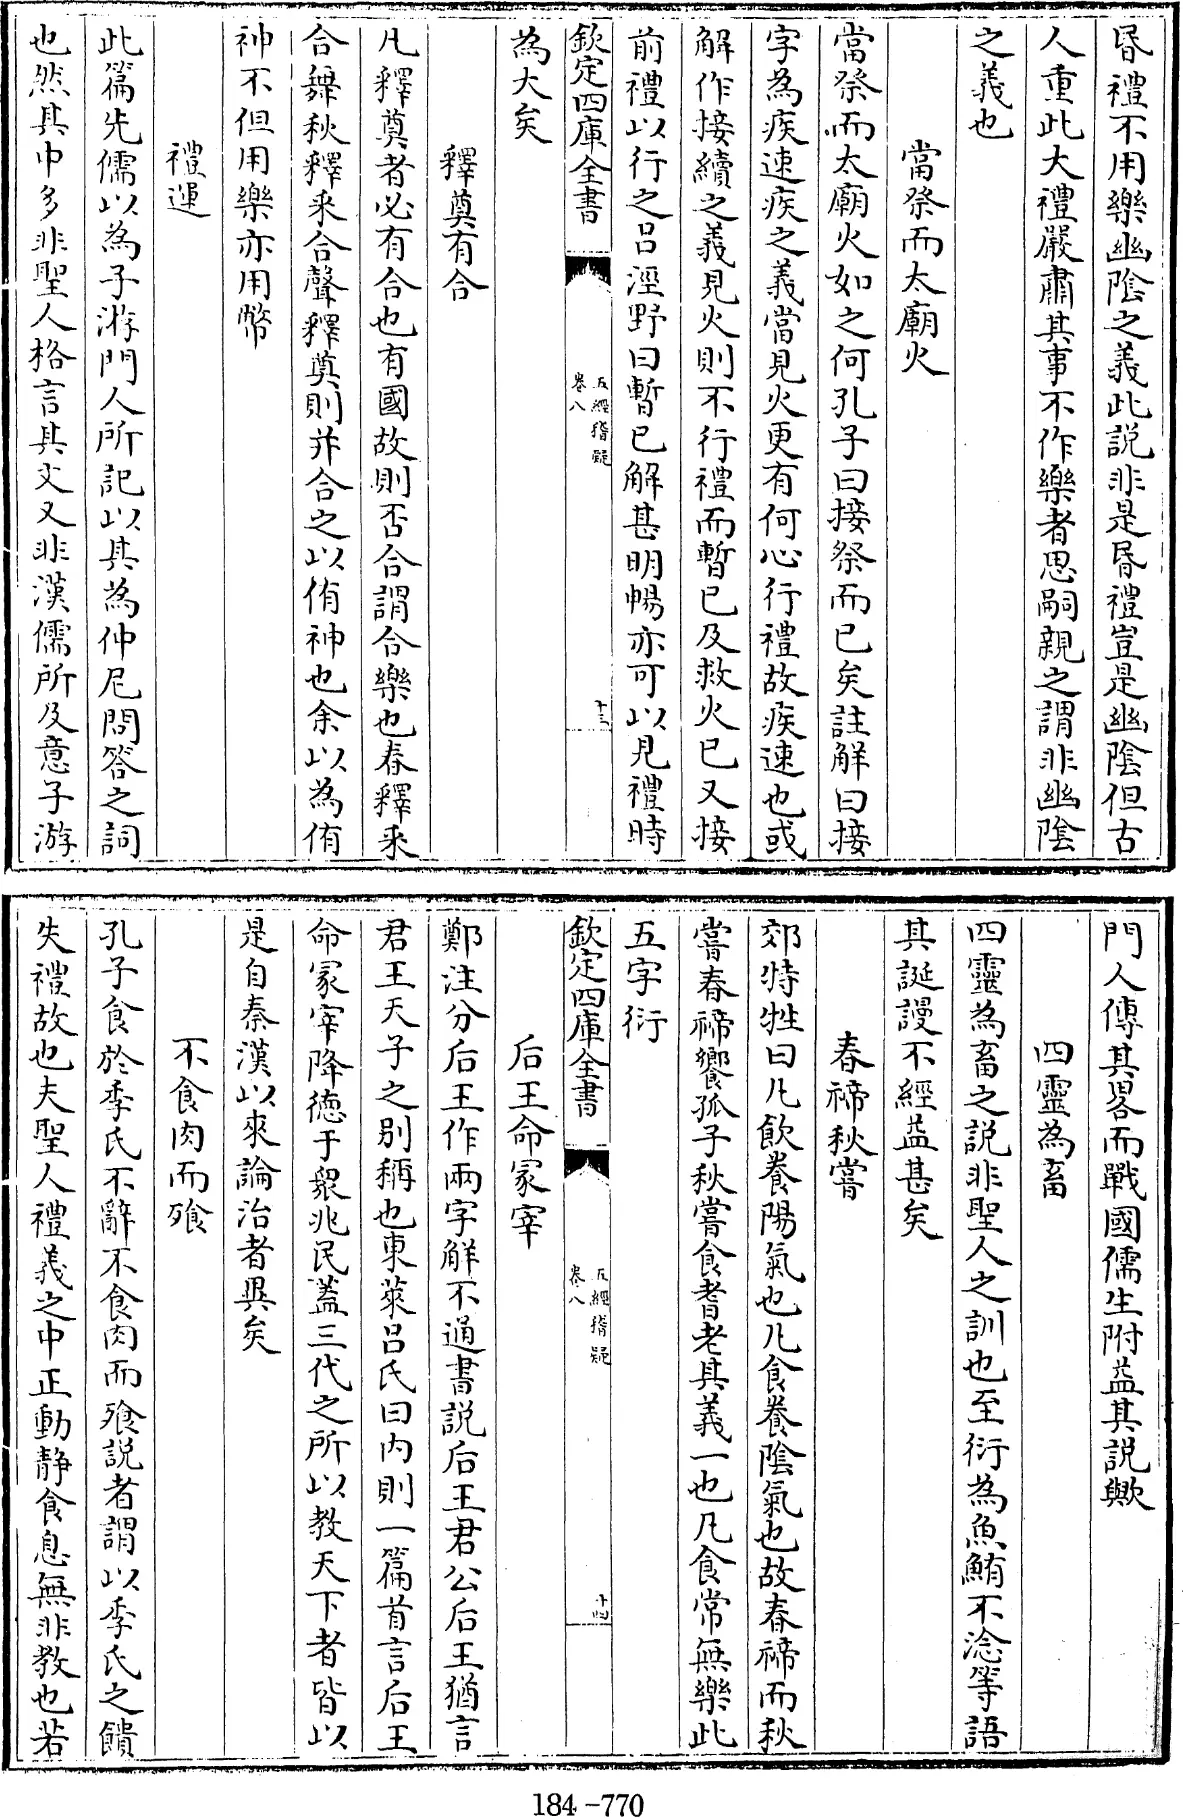 昬禮不用樂幽陰之義此説非是昬禮豈是幽陰但古
人重此大禮嚴肅其事不作樂者思嗣親之謂非幽陰
之義也
當祭而太廟火
當祭而太廟火如之何孔子曰接祭而已矣註解曰接
字為疾速疾之義當見火更有何心行禮故疾速也或
解作接續之義見火則不行禮而暫已及救火已又接
前禮以行之吕涇野曰暫已解甚明暢亦可以見禮時
欽定四庫全書
五經稽疑
卷八
十三
為大矣
釋奠有合
凡釋奠者必有合也有國故則否合謂合樂也春釋釆
合舞秋釋釆合聲釋奠則并合之以侑神也余以為侑
神不但用樂亦用幣
禮運
此篇先儒以為子游門人所記以其為仲尼問答之詞
也然其中多非聖人格言其文又非漢儒所及意子游
門人傳其畧而戰國儒生附益其説歟
四靈為畜
四靈為畜之説非聖人之訓也至衍為魚鮪不淰等語
其誕謾不經益甚矣
春禘秋嘗
郊特牲曰凡飲養陽氣也凡食養陰氣也故春禘而秋
嘗春禘饗孤子秋嘗食耆老其義一也凡食常無樂此
五字衍
欽定四庫全書
五經稽疑
卷八
十四
后王命冢宰
鄭注分后王作兩字解不通書説后王君公后王猶言
君王天子之别稱也東萊吕氏曰内則一篇首言后王
命冢宰降徳于衆兆民蓋三代之所以教天下者皆以
是自秦漢以來論治者異矣
不食肉而飱
孔子食於季氏不辭不食肉而飱説者謂以季氏之饋
失禮故也夫聖人禮義之中正動靜食息無非教也若
184-770